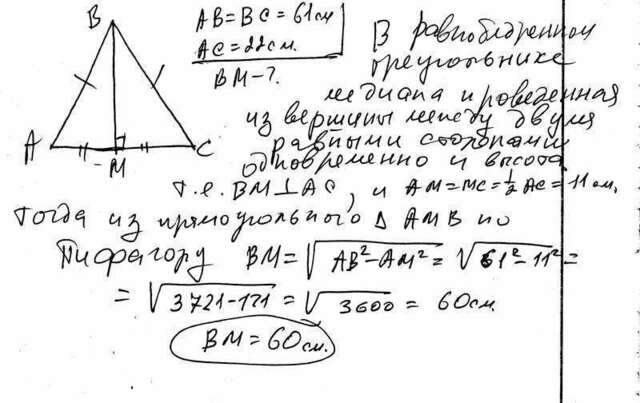 B
A
M
C
AB=BC=61см
AC=22см.
BM-?
В равнобедренном
треугольнике
медиана проведенная
из вершины между двумя
равными сторонами
одновременно и высота
т.е. BM⊥AC, и AM=MC=½AC=11см,
Тогда из прямоугольного Δ AMB по
Пифагору BM=√AB²-AM²=√61²-11²=
=√3721-121=√3600=60см
BM=60см.